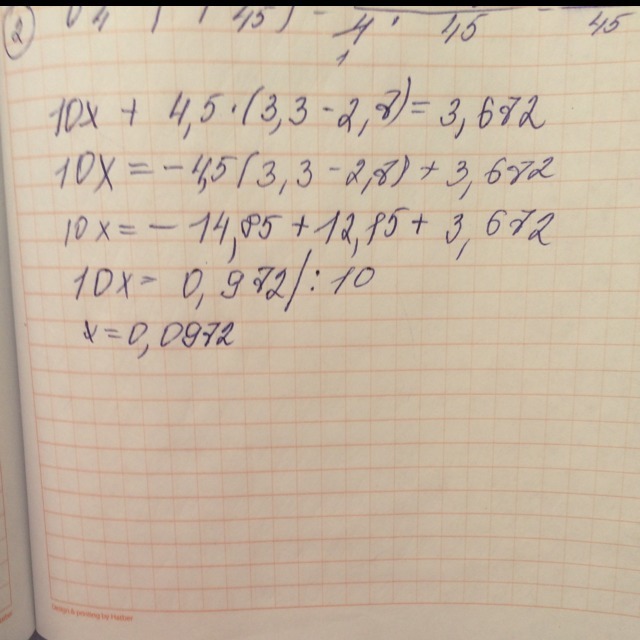 ②
45) - 4 · 45 = 45
1
10x + 4,5 · (3,3 - 2,7) = 3,672
10x = - 4,5 (3,3 - 2,7) + 3,672
10x = - 14,85 + 12,15 + 3,672
10x = 0,972 /: 10
x = 0,0972
Design & printing by Hatber